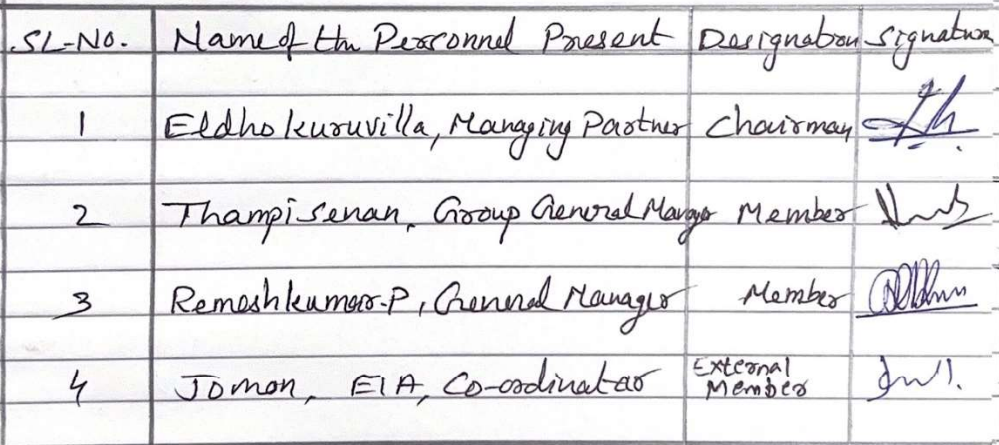 SL-No. Name of the Personnel Present Designation Signature
1 Eldho kuruvilla, Managing Partner Chairman
2 Thampi senan, Group General Manager Member
3 Remeshkumar.P, General Manager Member
4 Jomon, EIA, Co-ordinator External Member